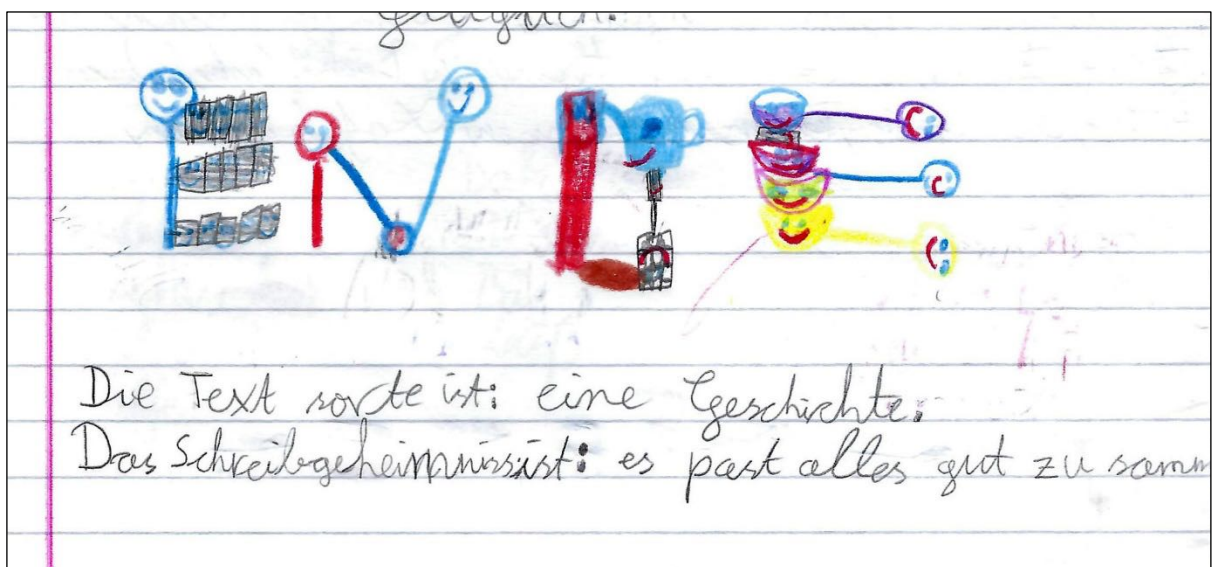 ENDE
Die Text sorte ist: eine Geschichte.
Das Schreibgeheimnissist: es past alles gut zu samm